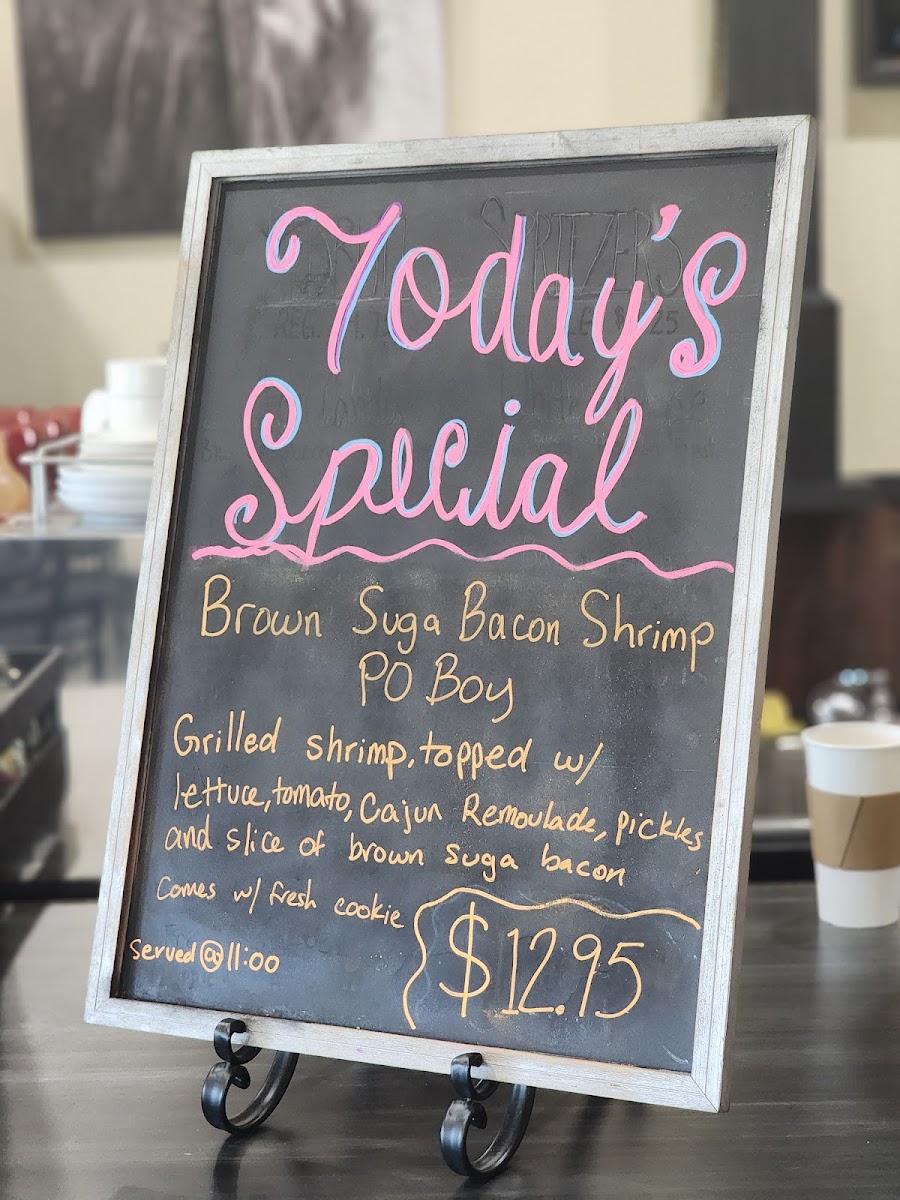 Today's
Special
Brown Suga Bacon Shrimp
PO Boy
Grilled shrimp, topped w/
lettuce, tomato, Cajun Remoulade, pickles
and slice of brown suga bacon
Comes w/ fresh cookie
$12.95
served@11:00